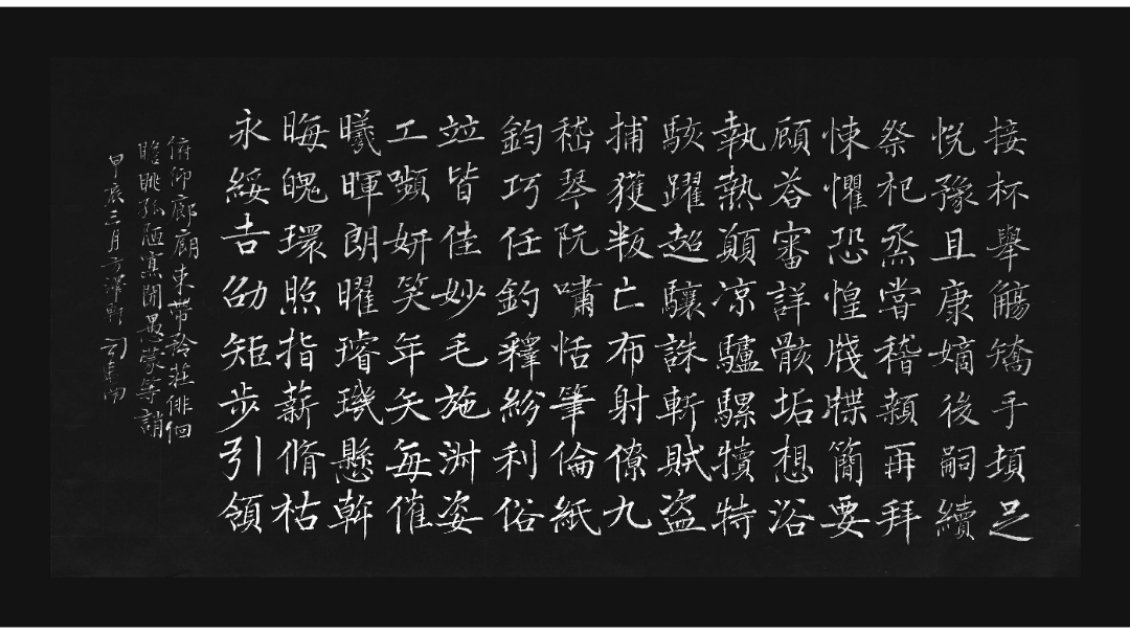 接杯舉觴矯手頓足
悅豫且康嫡後嗣續
祭祀烝嘗稽顙再拜
悚懼恐惶牋牒簡要
顧答審詳骸垢想浴
執熱願凉驢騾犢特
駭躍超驤誅斬賊盜
捕獲叛亡布射僚丸
嵇琴阮嘯恬筆倫紙
鈞巧任釣釋紛利俗
竝皆佳妙毛施淑姿
工嚬妍笑年矢每催
曦暉朗曜璿璣懸斡
晦魄環照指薪脩祜
永綏吉劭矩步引領
俯仰廊廟束帶矜莊徘徊
瞻眺孤陋寡聞愚蒙等誚
甲辰三月